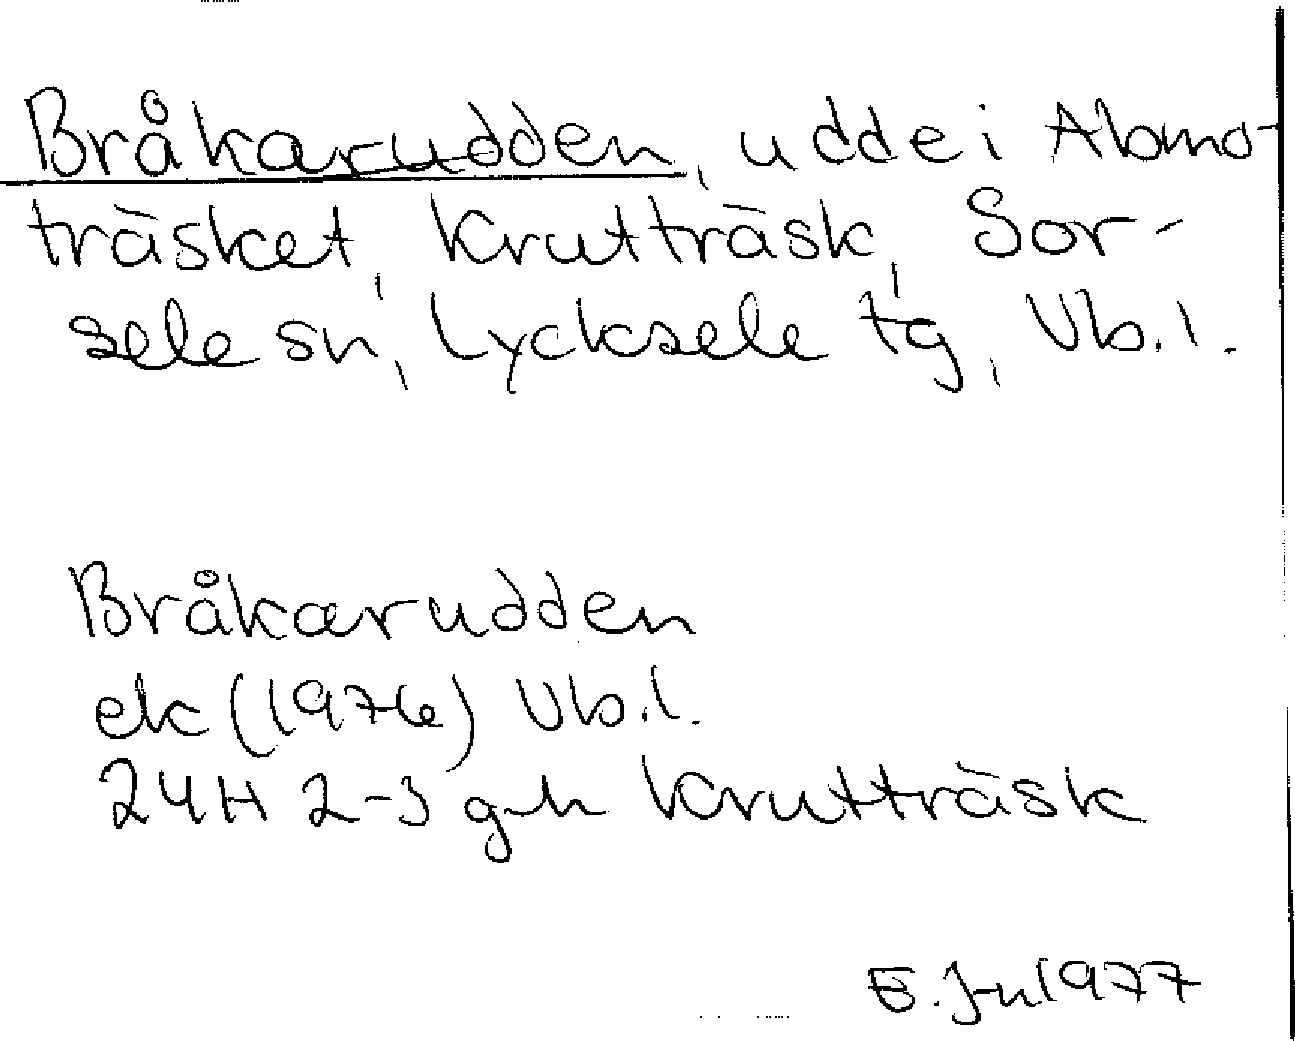 Bråkarudden, udde i Abmo-
träsket, Krutträsk, Sor-
sele sn, Lycksele tg, Vb. l.
Bråkarudden
ek (1976) Vb. l.
24H 2-3 g-h Krutträsk
1977